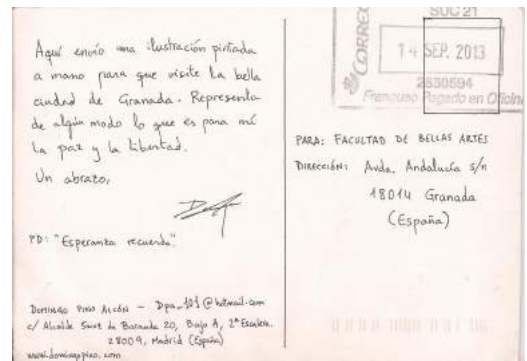 Aquí envío una ilustración pintada
a mano para que visite la bella
ciudad de Granada. Representa
de algún modo lo que es para mí
la paz y la libertad.
Un abrazo,
PD: "Esperanza recuerdo".
DOMINGO PINO ALCÓN - Dpa_101@hotmail.com
c/ Alcalde Sainz de Baranda 20, Bajo A, 2ª Escalera.
28009, Madrid (España)
www.domingopino.com
CORREOS
SUC 21
14 SEP. 2013
2830594
Franqueo Pagado en Oficina
PARA: FACULTAD DE BELLAS ARTES
DIRECCIÓN: Avda. Andalucía s/n
18014 Granada
(España)